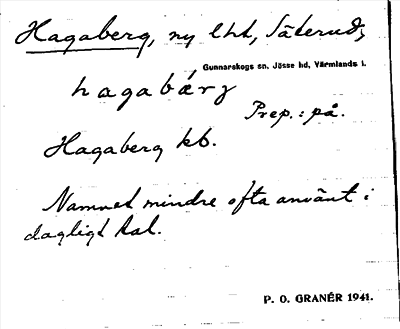 Hagaberg, ny lht, Säterud,
Gunnarskogs sn, Jösse hd, Värmlands l.
hagabärj
Prep.: på.
Hagaberg kb.
Namnet mindre ofta använt i
dagligt tal.
P. O. GRANÉR 1941.